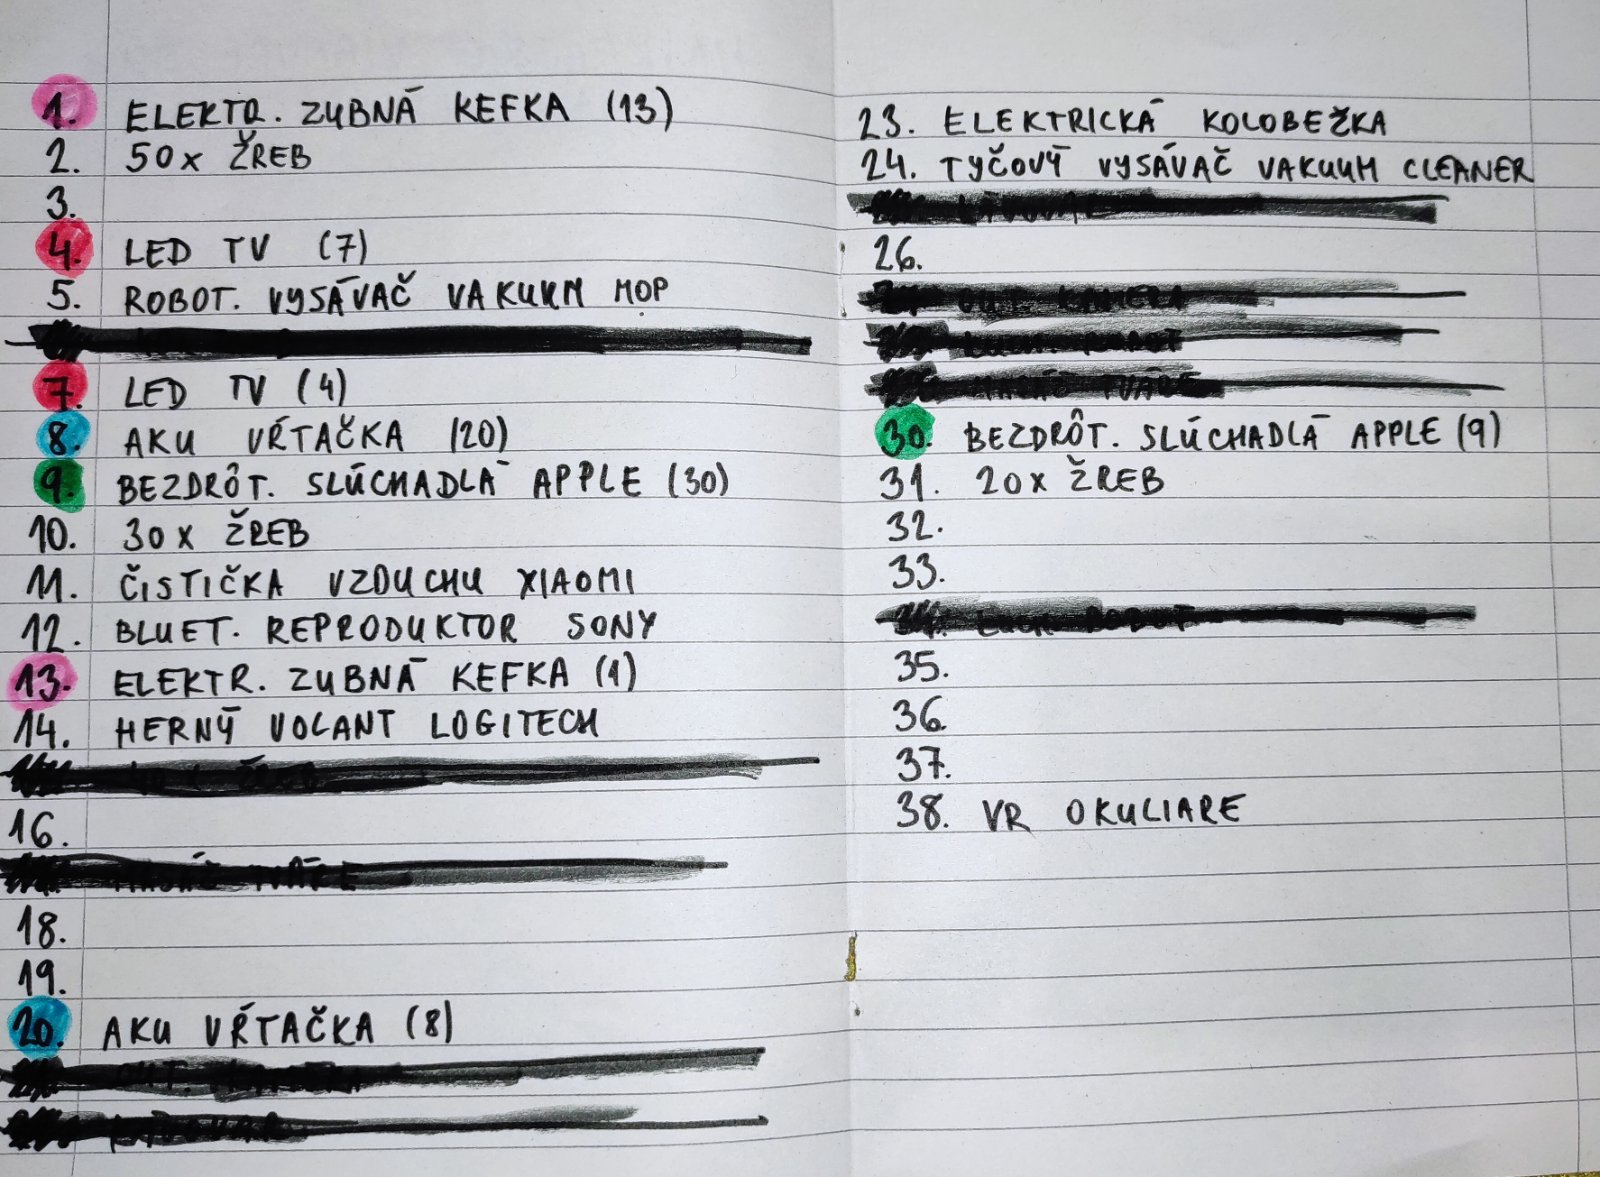 1. ELEKTR. ZUBNÁ KEFKA (13)
2. 50x ŽREB
3.
4. LED TV (7)
5. ROBOT. VYSÁVAČ VAKUUM MOP
7. LED TV (4)
8. AKU VŔTAČKA (20)
9. BEZDRÔT. SLÚCHADLÁ APPLE (30)
10. 30x ŽREB
11. ČISTIČKA VZDUCHU XIAOMI
12. BLUET. REPRODUKTOR SONY
13. ELEKTR. ZUBNÁ KEFKA (1)
14. HERNÝ VOLANT LOGITECH
16.
MASÁČ TVÁRE
18.
19.
20. AKU VŔTAČKA (8)
23. ELEKTRICKÁ KOLOBEŽKA
24. TYČOVÝ VYSÁVAČ VAKUUM CLEANER
26.
30. BEZDRÔT. SLÚCHADLÁ APPLE (9)
31. 20x ŽREB
32.
33.
35.
36.
37.
38. VR OKULIARE